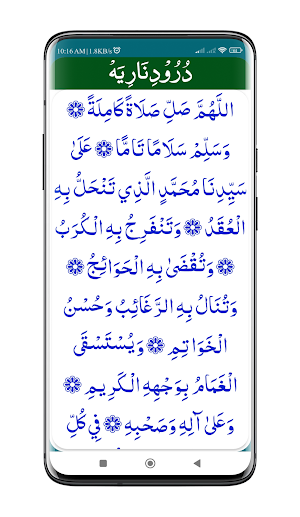 10:16 AM | 1.8KB/s
دُرُوْدِنَارِيَهْ
اَللّٰهُمَّ صَلِّ صَلَاةً كَامِلَةً
وَسَلِّمْ سَلَامًا تَامًّا ۞ عَلَىٰ
سَيِّدِنَا مُحَمَّدٍ الَّذِي تَنْحَلُّ بِهِ
الْعُقَدُ ۞ وَتَنْفَرِجُ بِهِ الْكُرَبُ
۞ وَتُقْضَىٰ بِهِ الْحَوَائِجُ ۞
وَتُنَالُ بِهِ الرَّغَائِبُ وَحُسْنُ
الْخَوَاتِمِ ۞ وَيُسْتَسْقَى
الْغَمَامُ بِوَجْهِهِ الْكَرِيمِ ۞
وَعَلىٰ آلِهِ وَصَحْبِهِ ۞ فِي كُلِّ